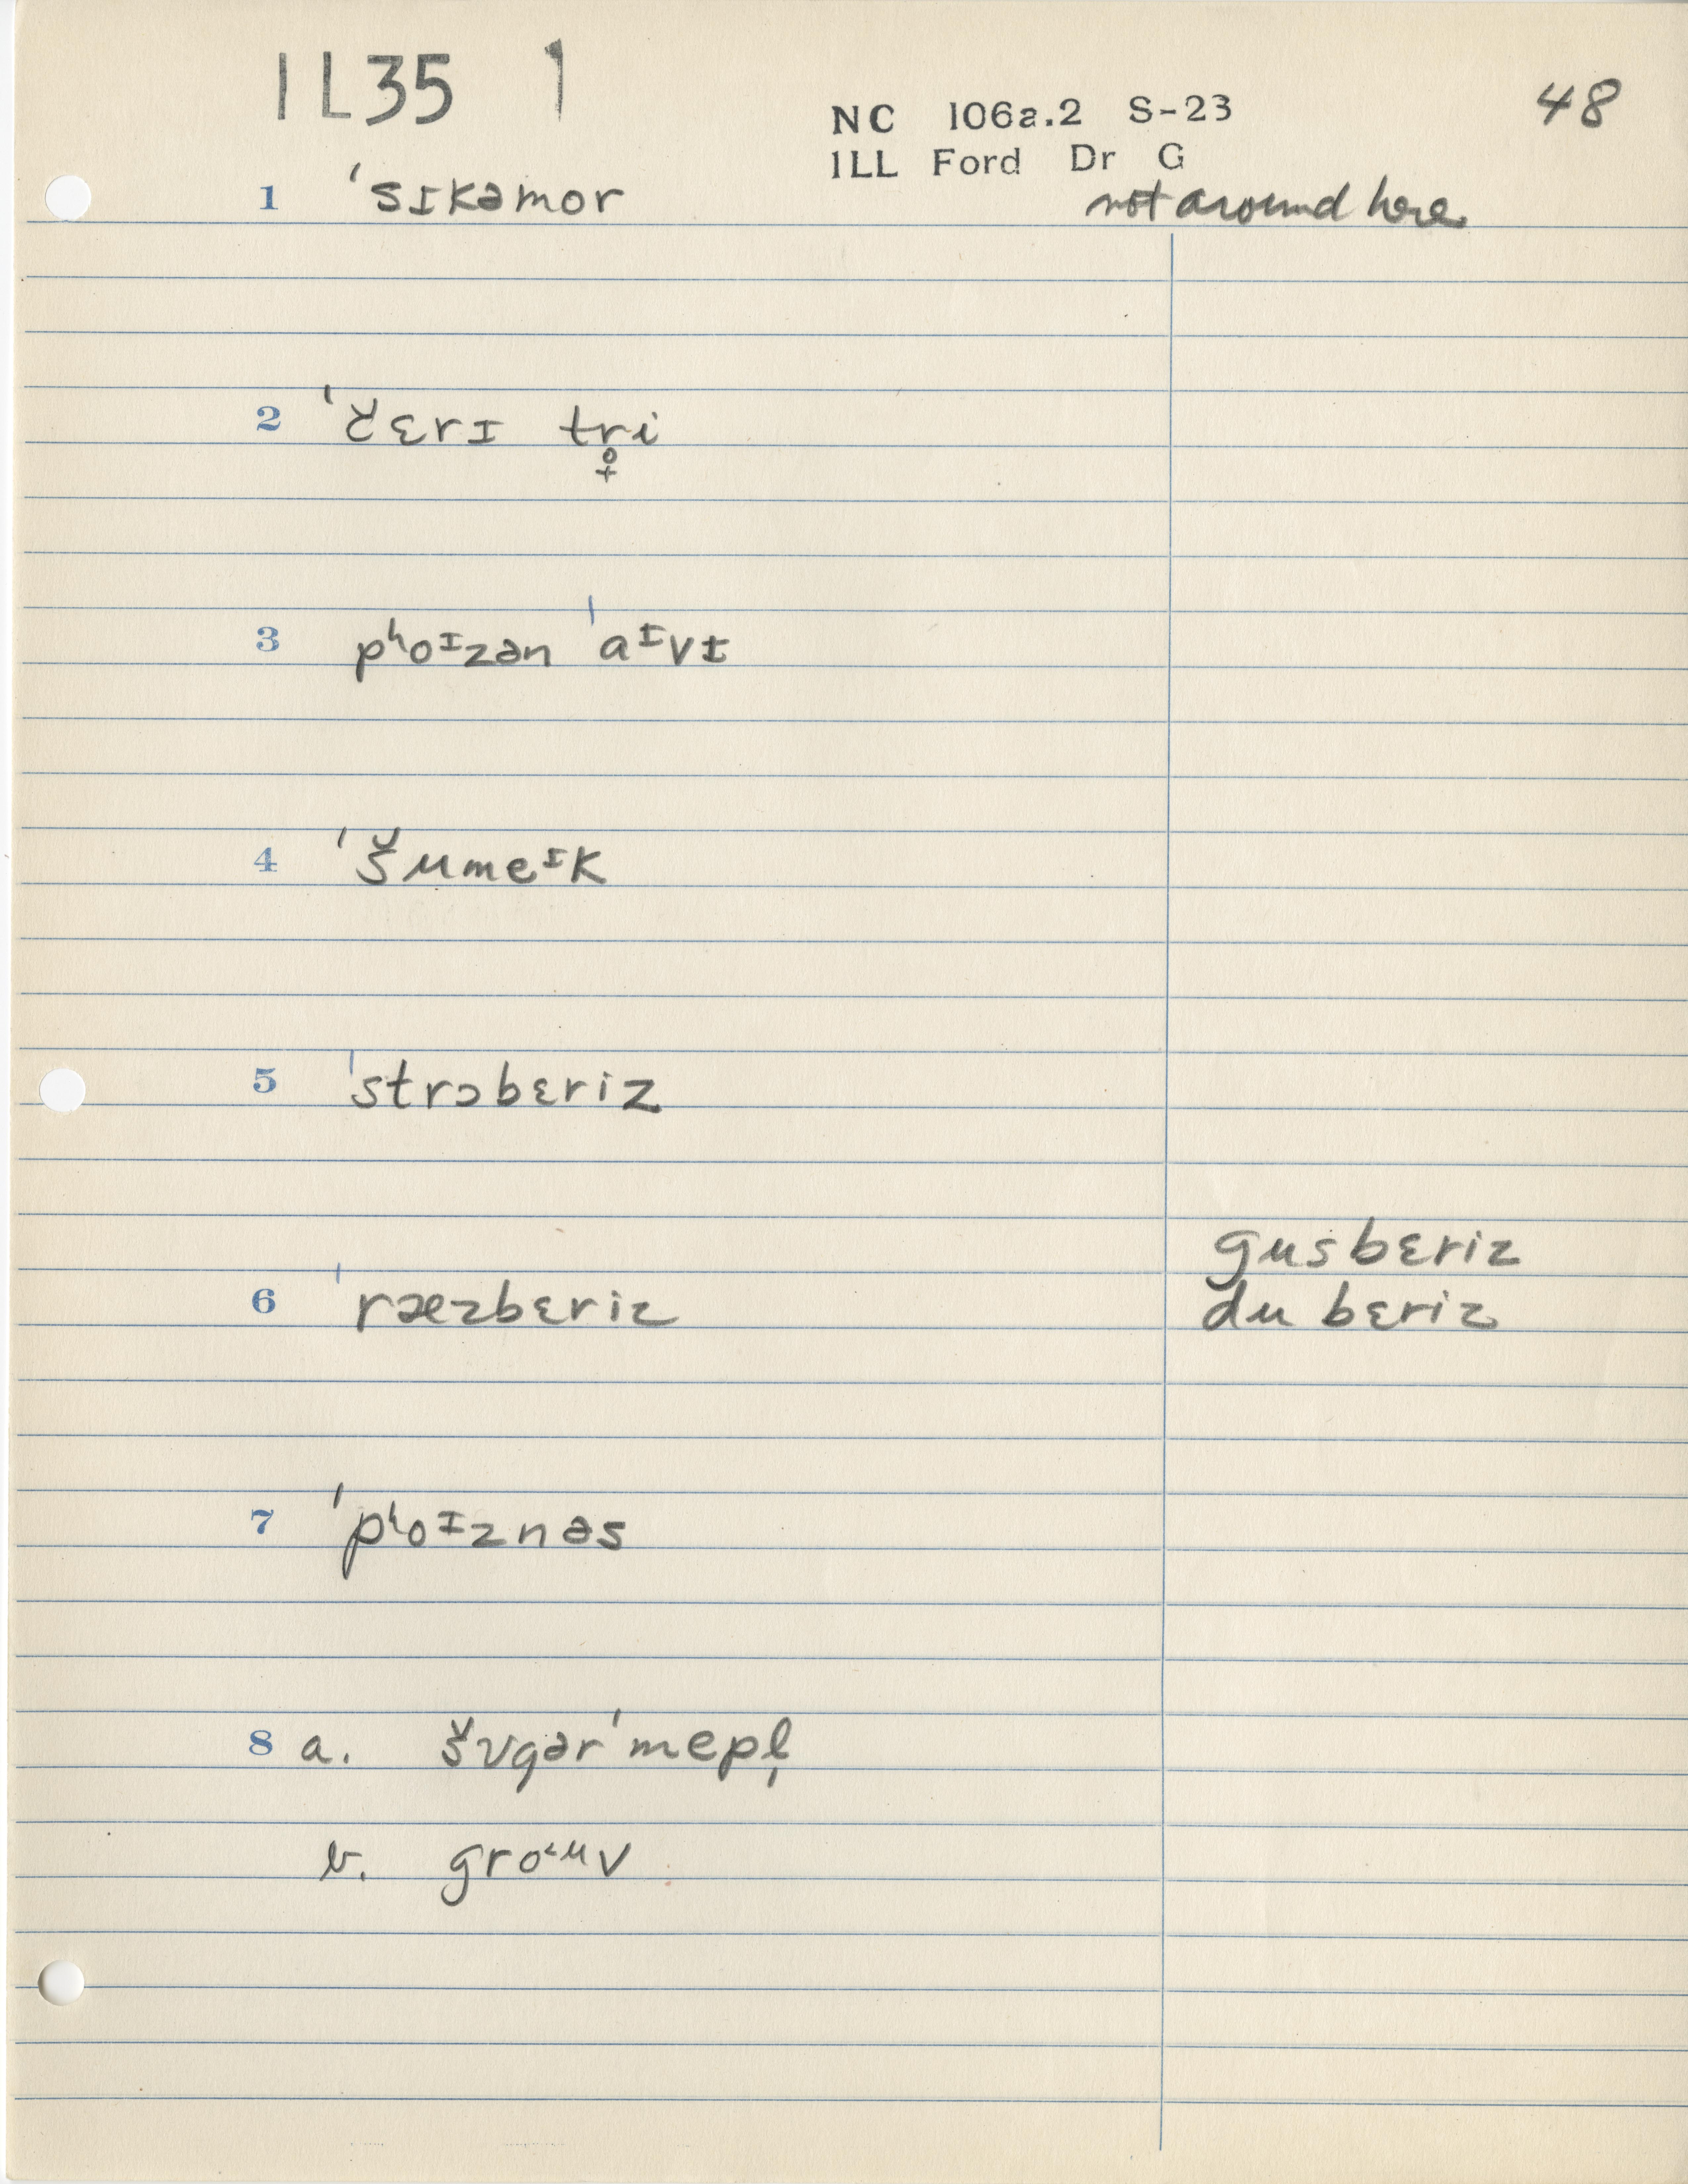 IL35 1
NC 106a.2 S-23
ILL Ford Dr G
48
1 ˈsɪkəmor not around here
2 ˈčɛrɪ tr̥̟i
3 pʰoᶦzən ˈaᶦvɪ
4 ˈšumeᶦk
5 ˈstrɔbɛriz
gusbɛriz
6 ˈræzbɛriz du bɛriz
7 ˈpʰoᶦznəs
8 a. šʊgər ˈmepl̩
b. gro˂ᵘv